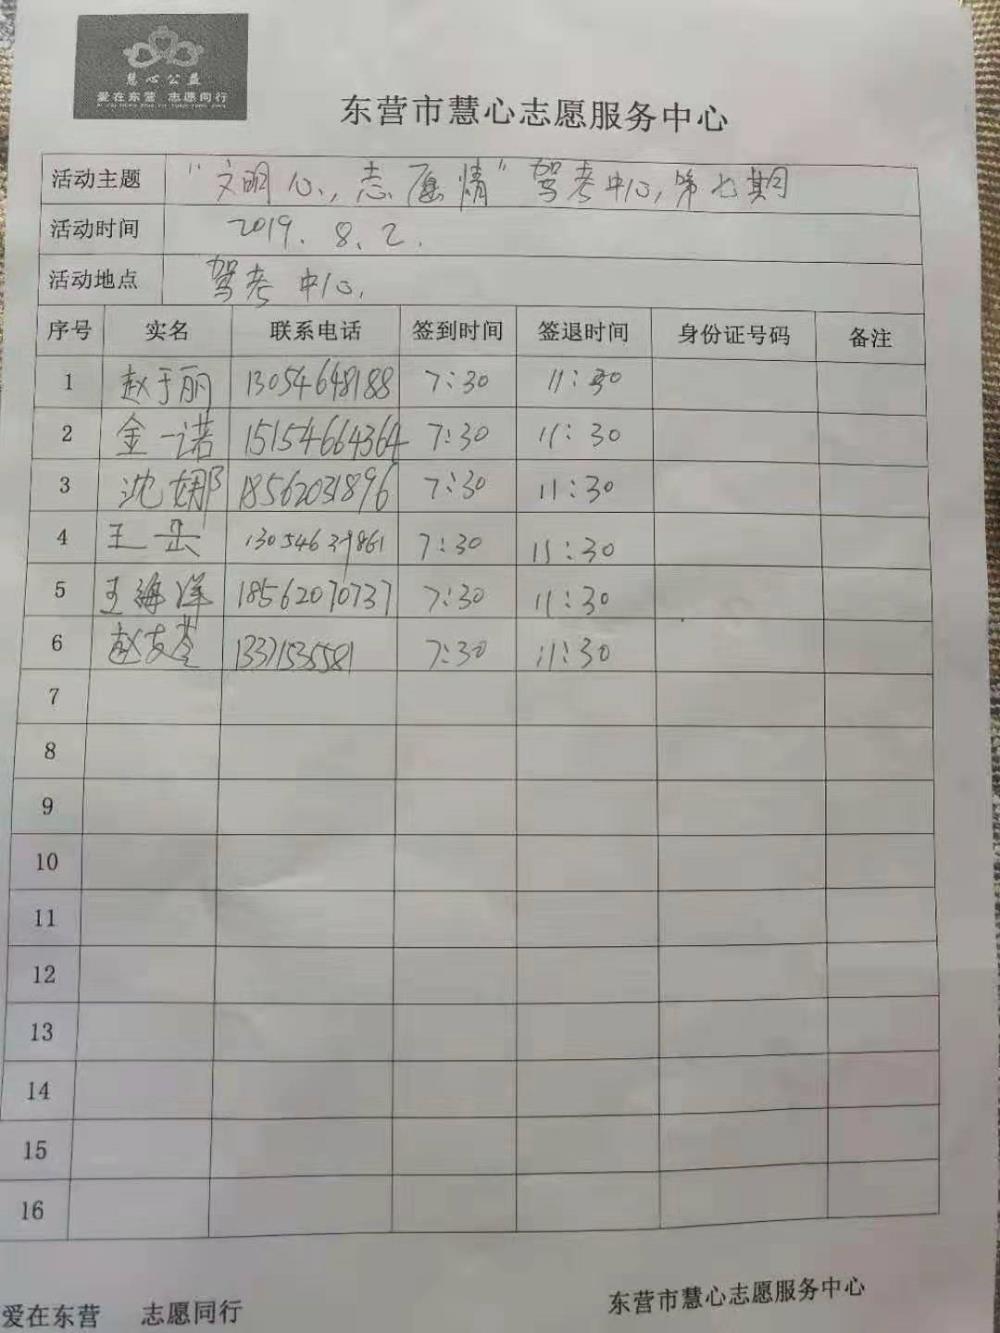 慧心公益
爱在东营 志愿同行
东营市慧心志愿服务中心
活动主题 “文明心,志愿情”驾考中心,第七期
活动时间 2019.8.2.
活动地点 驾考中心.
序号 实名 联系电话 签到时间 签退时间 身份证号码 备注
1 赵于丽 13054648188 7:30 11:30
2 金一诺 15154664364 7:30 11:30
3 沈娜 18562031896 7:30 11:30
4 王 7:30 11:30
5 王海洋 18562070737 7:30 11:30
6 赵友 7:30 11:30
7
8
9
10
11
12
13
14
15
16
爱在东营 志愿同行
东营市慧心志愿服务中心